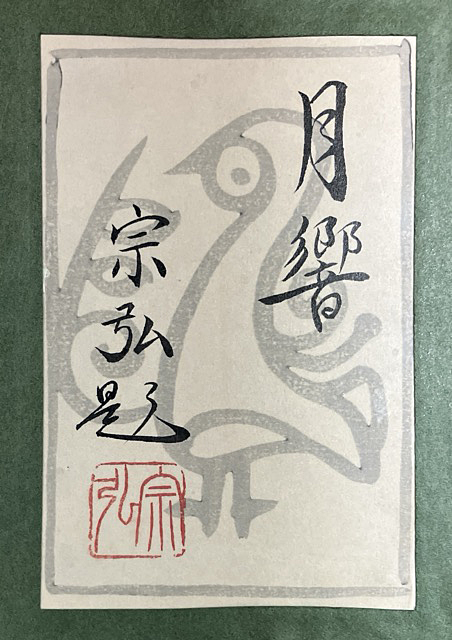 月響
宗弘題
宗弘